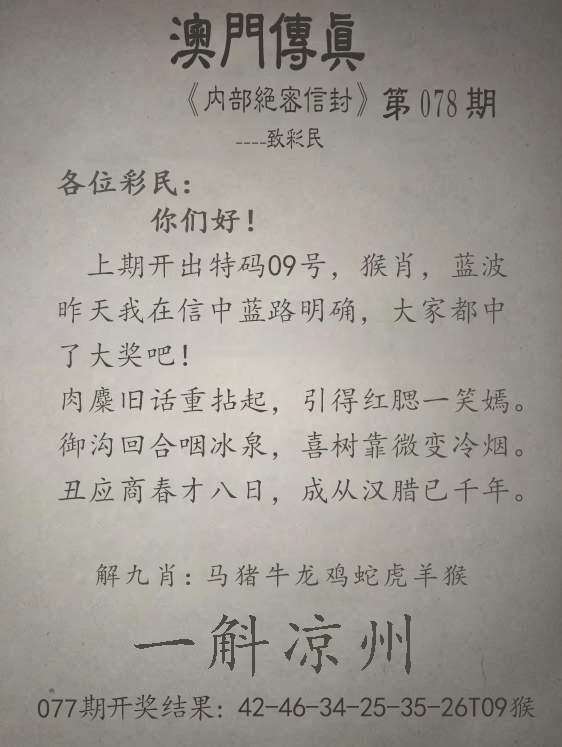 澳門傳眞
《内部絕密信封》第078期
----致彩民
各位彩民：
你们好！
上期开出特码09号，猴肖，蓝波
昨天我在信中蓝路明确，大家都中
了大奖吧！
肉麋旧话重拈起，引得红腮一笑嫣。
御沟回合咽冰泉，喜树靠微变冷烟。
丑应商春才八日，成从汉腊已千年。
解九肖：马猪牛龙鸡蛇虎羊猴
一斛凉州
077期开奖结果：42-46-34-25-35-26T09猴